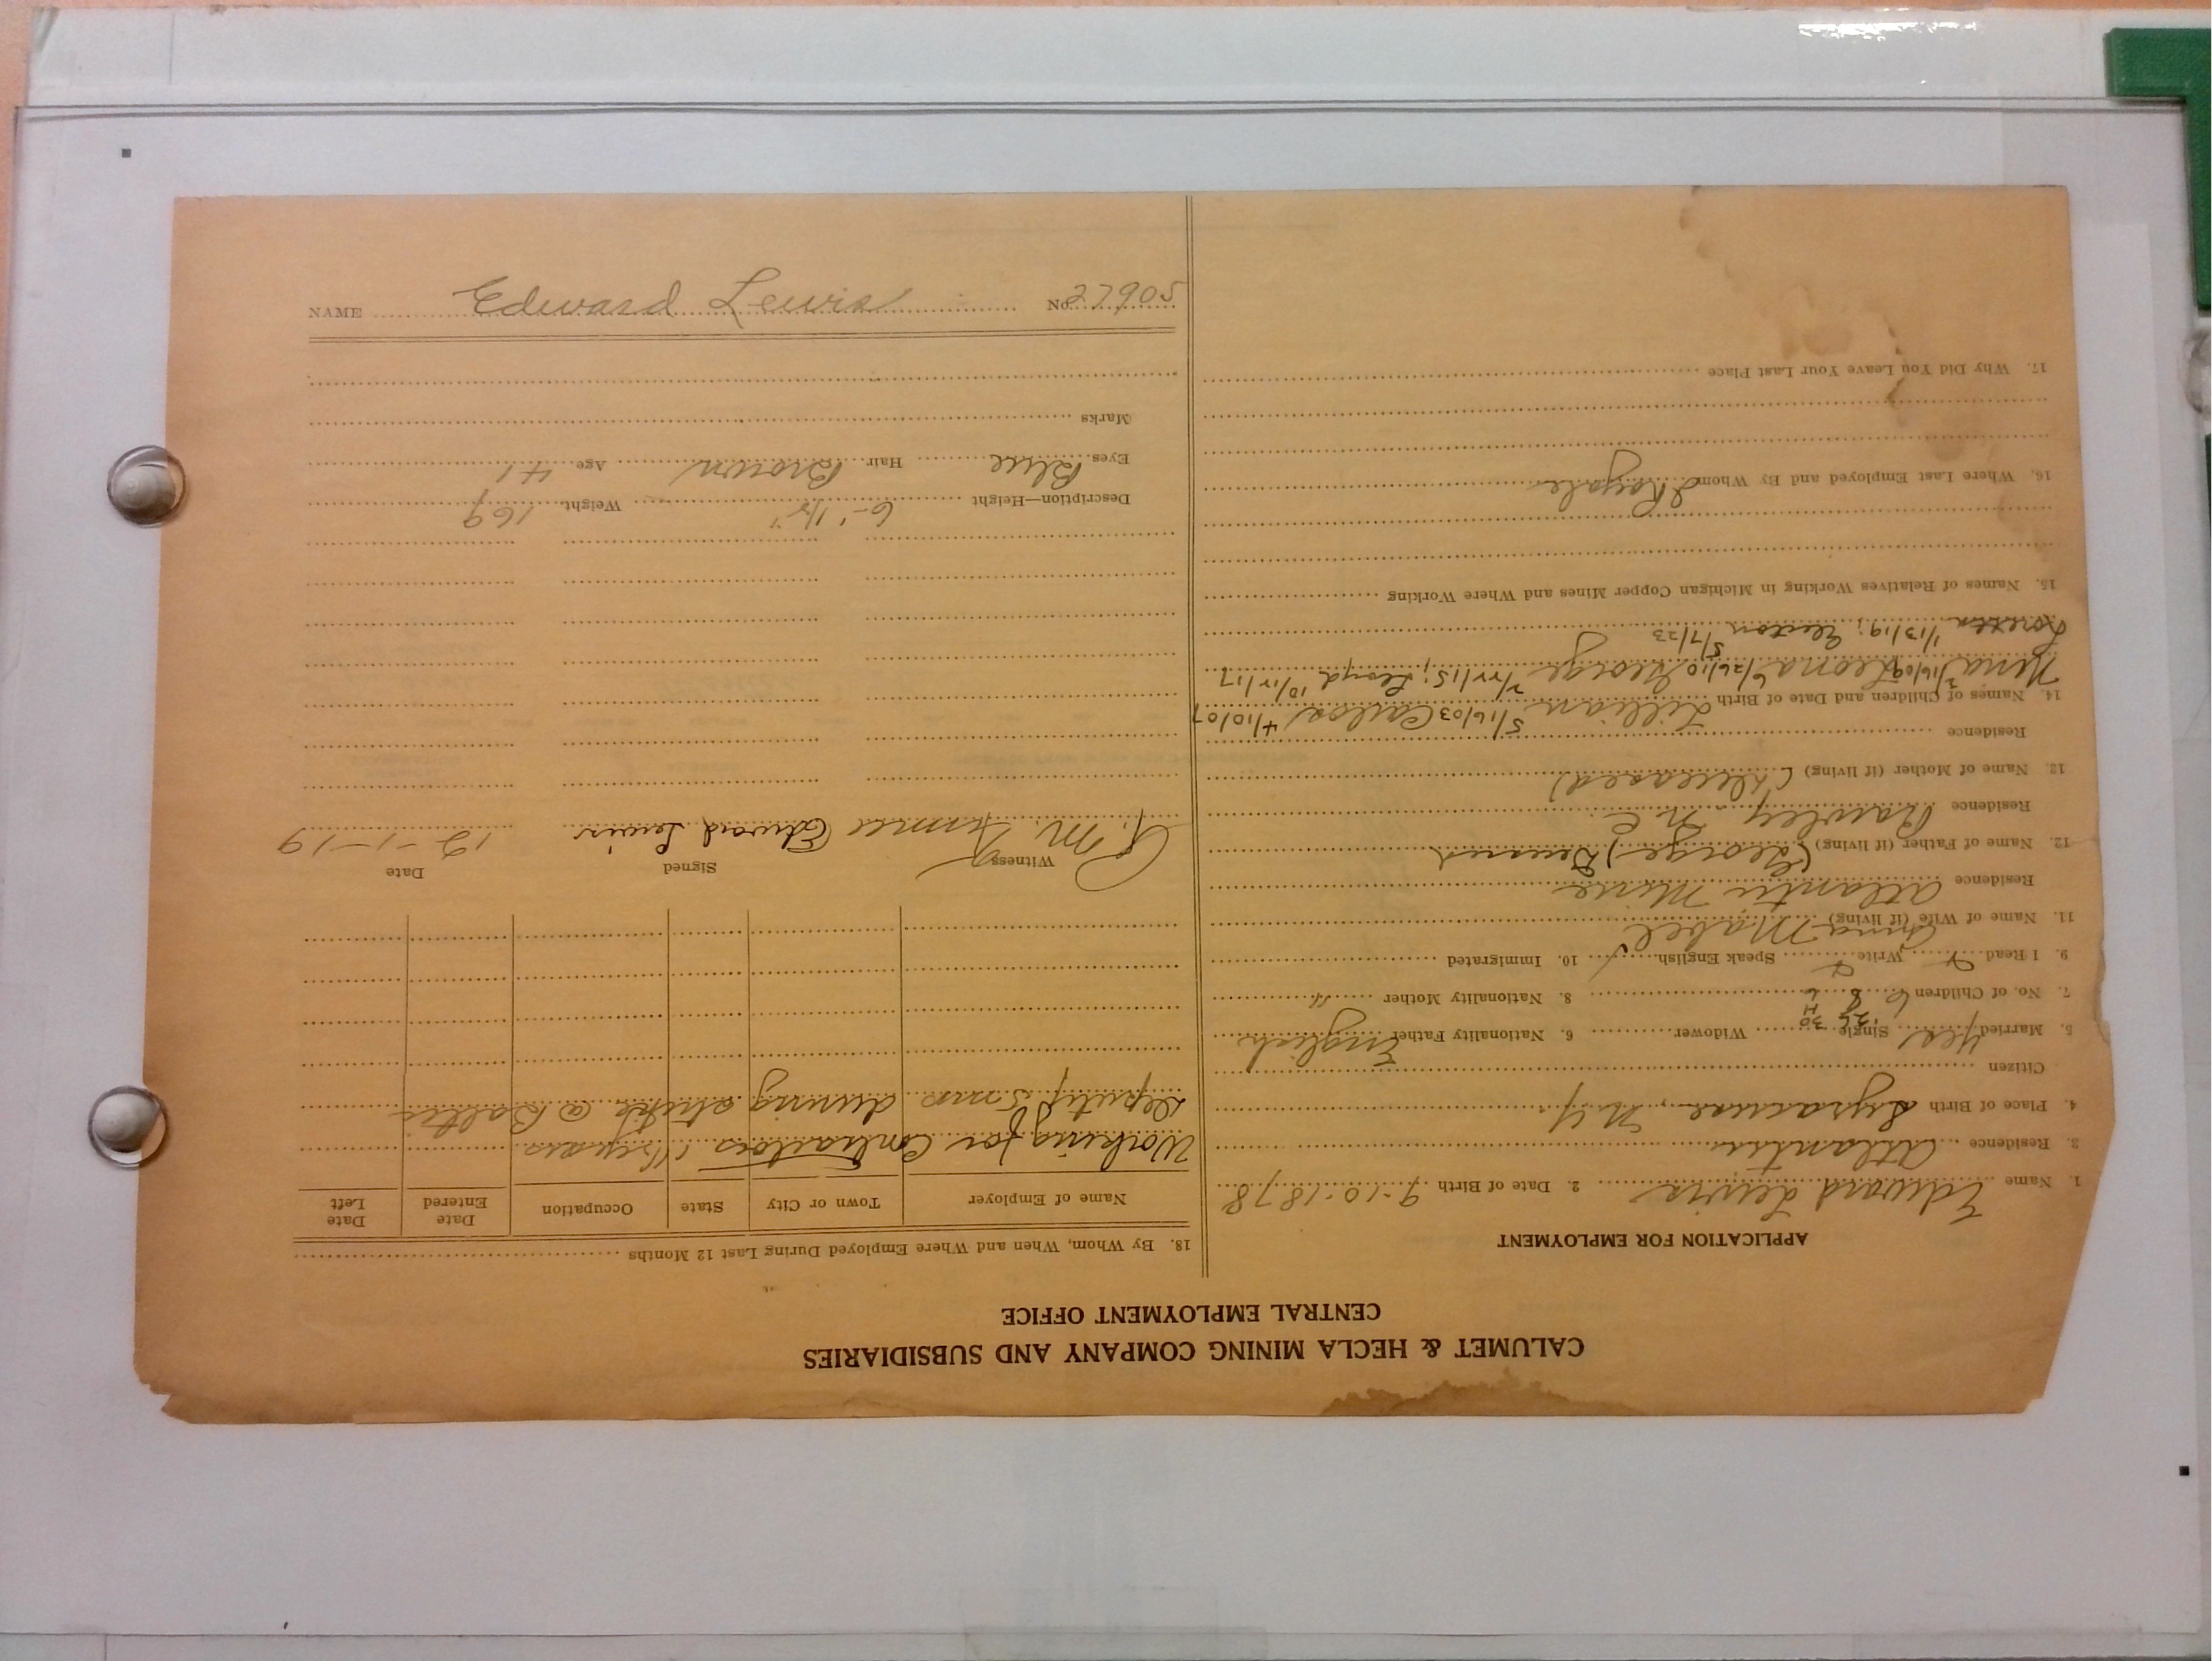 CALUMET & HECLA MINING COMPANY AND SUBSIDIARIES
CENTRAL EMPLOYMENT OFFICE
APPLICATION FOR EMPLOYMENT
1. Name Edward Lewis 2. Date of Birth 9-10-1878
3. Residence Atlantic
4. Place of Birth Syracuse, N.Y.
Citizen
5. Married Yes Single Widower 6. Nationality Father English
7. No. of Children 6 8 8. Nationality Mother "
9. I Read Write Speak English 10. Immigrated
11. Name of Wife (if living) Anna Mabel
Residence Atlantic Mine
12. Name of Father (if living) (George) Deceased
Residence Rawley N.C.
13. Name of Mother (if living) (Deceased)
Residence
14. Names of Children and Date of Birth Lillian 5/16/03 4/10/07
Leona 6/26/10 George Lloyd 10/12/17
Loretta 1/13/19; 5/7/23
15. Names of Relatives Working in Michigan Copper Mines and Where Working
16. Where Last Employed and By Whom I Royale
17. Why Did You Leave Your Last Place
18. By Whom, When and Where Employed During Last 12 Months
Name of Employer Town or City State Occupation Date Entered Date Left
Working for Contractors years
Deputy 5 mos during strike @ Baltic
Witness Signed Date
Edward Lewis 12-1-19
Description—Height 6-' 1/2" Weight 169
Eyes Blue Hair Brown Age 41
Marks
NAME Edward Lewis No. 27905